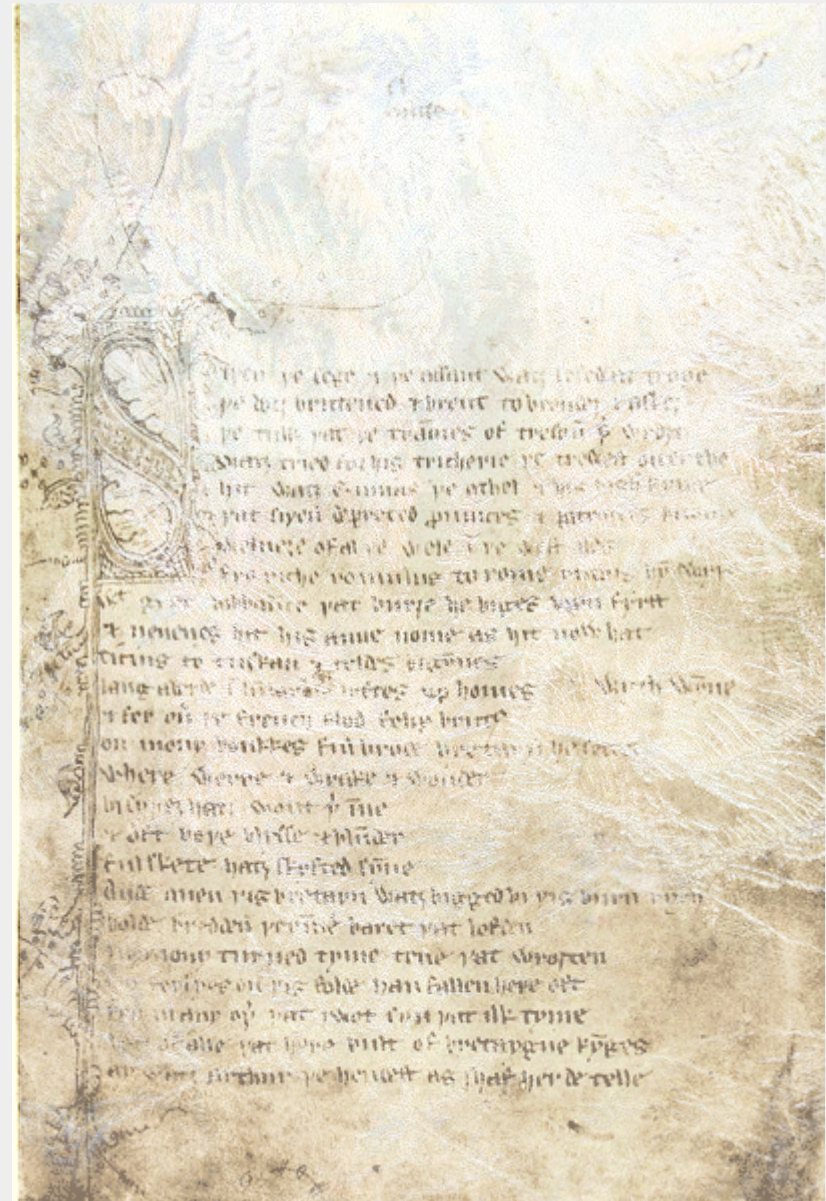 þe sege & þe assaut watz sesed at troye
þe borȝ brittened & brent to brondeȝ & askez
þe tulk þat þe trāmes of tresoū þ̉ wroȝt
watz tried for his tricherie þe trewest on erthe
hit watz ennias þe athel & his highe kynde
þat siþen depreced prouinces & patrounes bicome
welneȝe of al þe wele ī þe west iles
fro riche romulus to rome ricchis hȳ swyþe
gret bobbaūce þat burȝe he biges vpon fyrst
& neuenes hit his aune nome as hit now hat
ticius to tuskan & teldes bigȳnes
langaberde ī lumbardie lyftes vp homes
& fer oủ þe french flod felix brutus
on mony bonkkes ful brode bretayn he settez
wyth wȳne
where werre & wrake & wonder
bi syþez hatz wont þ̉ īne
& oft boþe blysse & blūder
ful skete hatz skyfted sȳne
Ande quen þis bretayn watz bigged bi þis burn rych
bolde bredden þerīne baret þat lofden
in mony turned tyme tene þat wroȝten
mo ferlyes on þis folde han fallen here oft
þen in any oþ̉ þat I wot syn þat ilk tyme
bot of alle þat here bult of bretaygne kȳges
ay watz arthur þe hendest as I haf herde telle